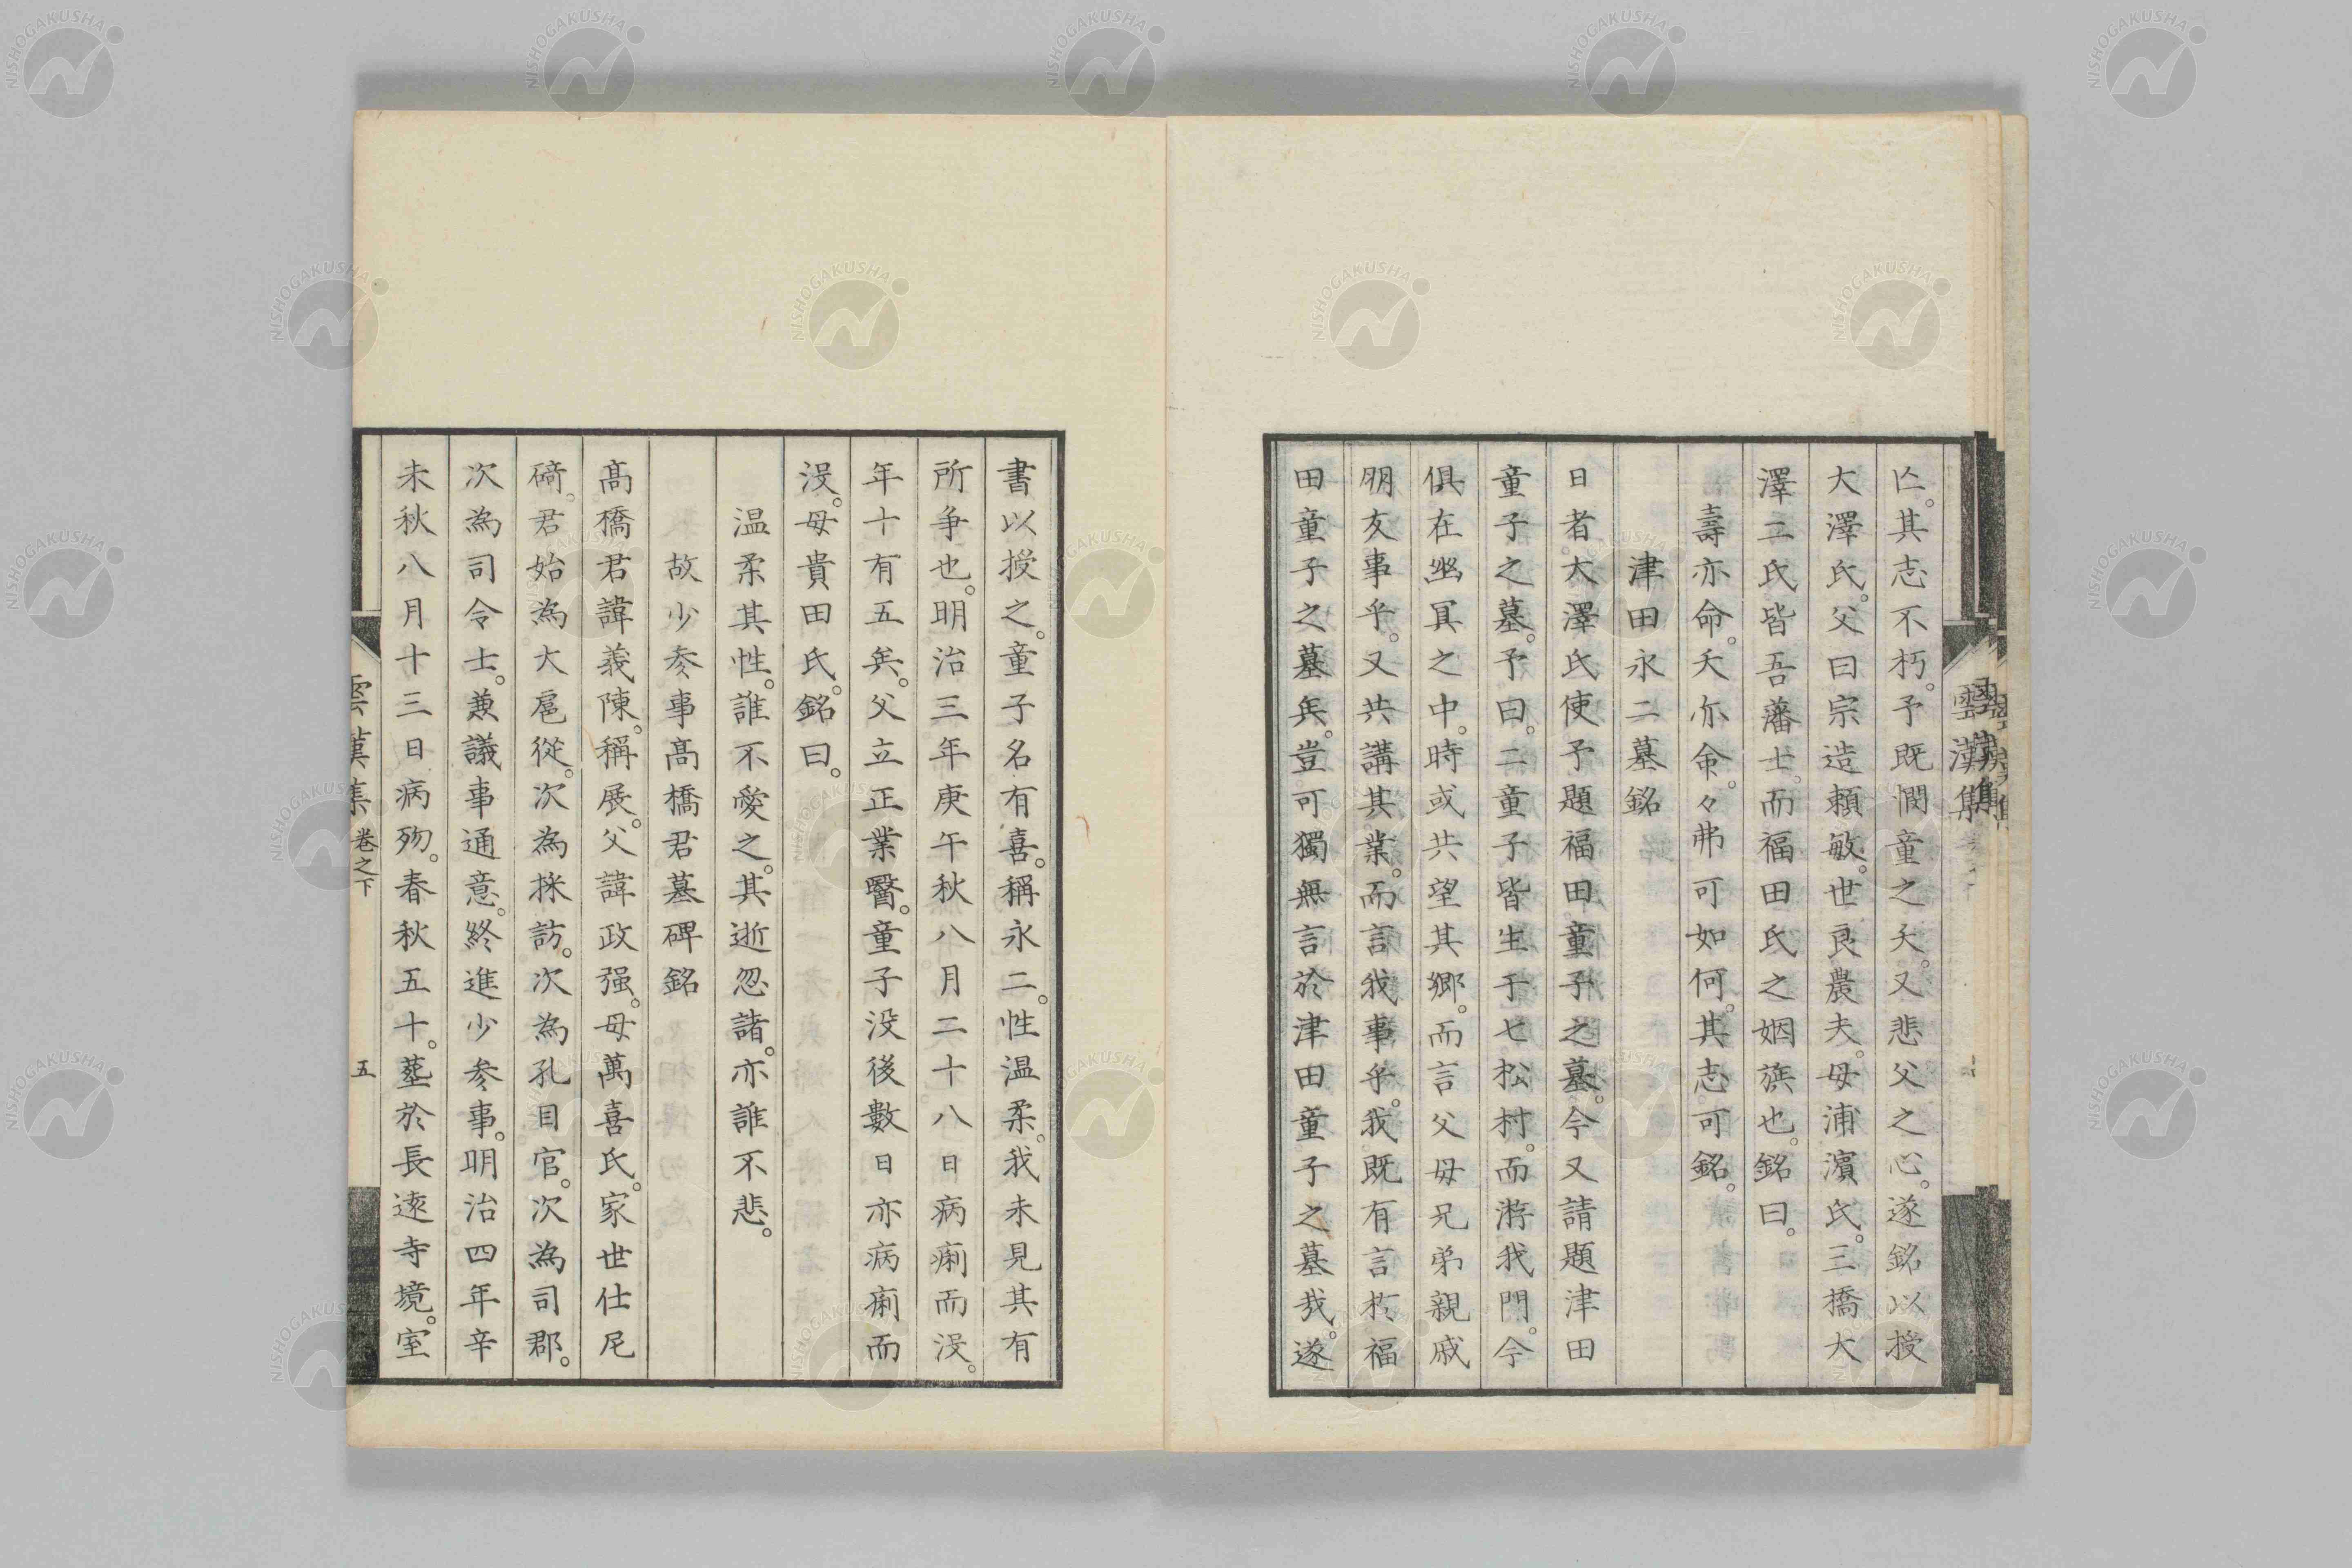 亾。其志不朽。予既憫童之夭。又悲父之心。遂銘以授
大澤氏。父曰宗造賴敏。世良農夫。母浦濱氏。三橋大
澤二氏皆吾藩士。而福田氏之姻族也。銘曰。
壽亦命。夭亦命。々弗可如何。其志可銘。
津田永二墓銘
日者大澤氏使予題福田童子之墓。今又請題津田
童子之墓。予曰。二童子皆生于七松村。而游我門。今
俱在幽冥之中。時或共望其鄉。而言父母兄弟親戚
朋友事乎。又共講其業。而言我事乎。我既有言於福
田童子之墓矣。豈可獨無言於津田童子之墓哉。遂
書以授之。童子名有喜。稱永二。性温柔。我未見其有
所争也。明治三年庚午秋八月二十八日病痢而没。
年十有五矣。父立正業醫。童子没後數日亦病痢而
没。母貴田氏。銘曰。
温柔其性。誰不愛之。其逝忽諸。亦誰不悲。
故少参事髙橋君墓碑銘
髙橋君諱義陳。稱展。父諱政强。母萬喜氏。家世仕尼
碕。君始為大扈從。次為採訪。次為孔目官。次為司郡。
次為司令士。兼議事通意。終進少参事。明治四年辛
未秋八月十三日病歾。春秋五十。葬於長遠寺境。室
雲漢集 卷之下 五
雲漢集